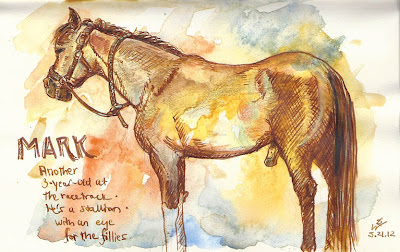 MARK
Another
3-year-old at
the racetrack.
He's a stallion.
with an eye
for the fillies
5.31.12